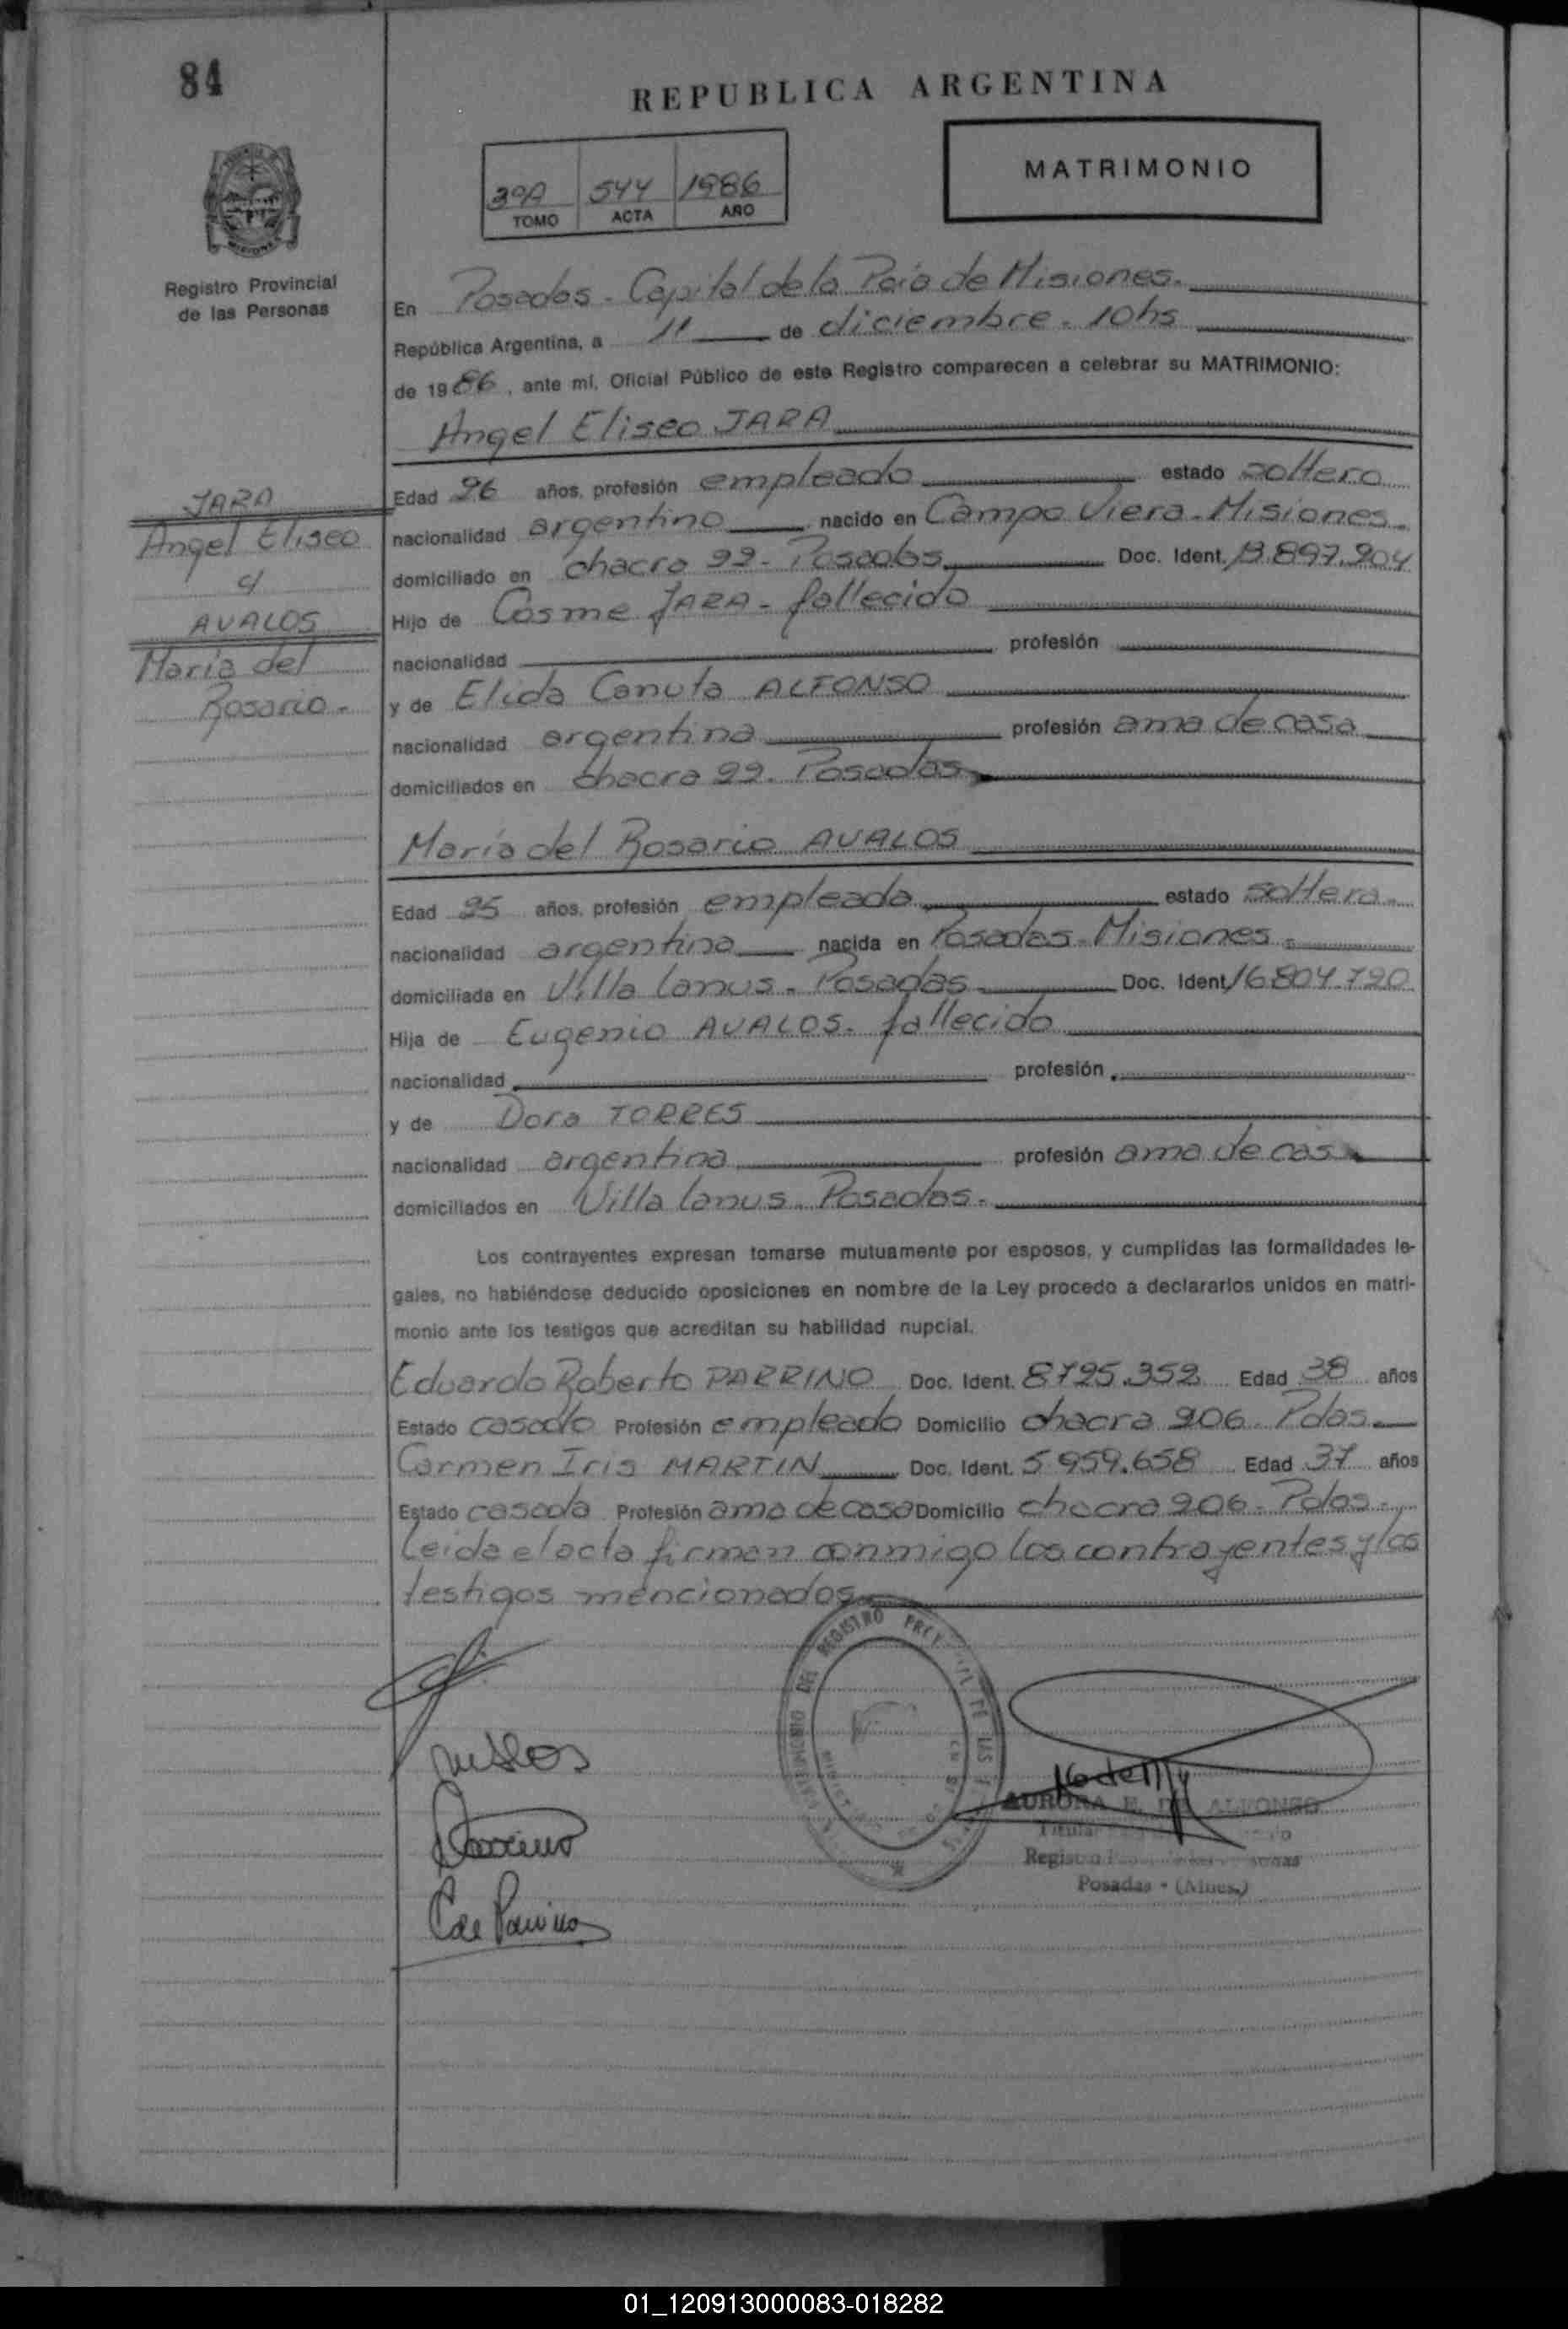 84
REPUBLICA ARGENTINA
3ºA 544 1986
TOMO ACTA AÑO
MATRIMONIO
Registro Provincial
de las Personas
En Posadas - Capital de la Pcia de Misiones.
República Argentina, a 11 de diciembre - 10 hs
de 1986, ante mí, Oficial Público de este Registro comparecen a celebrar su MATRIMONIO:
Angel Eliseo JARA
JARA
Angel Eliseo
y
AVALOS
María del
Rosario -
Edad 26 años, profesión empleado estado soltero
nacionalidad argentino nacido en Campo Viera - Misiones -
domiciliado en chacra 99 - Posadas Doc. Ident. 13.897.204
Hijo de Cosme JARA - fallecido
nacionalidad profesión
y de Elida Canuta ALFONSO
nacionalidad argentina profesión ama de casa
domiciliados en chacra 99 - Posadas
María del Rosario AVALOS
Edad 25 años, profesión empleada estado soltera -
nacionalidad argentina nacida en Posadas - Misiones -
domiciliada en Villa Lanus - Posadas - Doc. Ident. 16.804.720
Hija de Eugenio AVALOS - fallecido
nacionalidad profesión
y de Dora TORRES
nacionalidad argentina profesión ama de casa
domiciliados en Villa Lanus - Posadas -
Los contrayentes expresan tomarse mutuamente por esposos, y cumplidas las formalidades le-
gales, no habiéndose deducido oposiciones en nombre de la Ley procedo a declararlos unidos en matri-
monio ante los testigos que acreditan su habilidad nupcial.
Eduardo Roberto PARRINO Doc. Ident. 8725.352 Edad 38 años
Estado casado Profesión empleado Domicilio chacra 206 - Pdas -
Carmen Iris MARTIN Doc. Ident. 5 959.658 Edad 37 años
Estado casada Profesión ama de casa Domicilio chacra 206 - Pdas -
Leida el acta firman conmigo los contrayentes y los
testigos mencionados
DEL REGISTRO DE LAS
AURORA E. DE ALFONSO
Titular
Registro
Posadas - (Mnes.)
C de Parrino
01_120913000083-018282